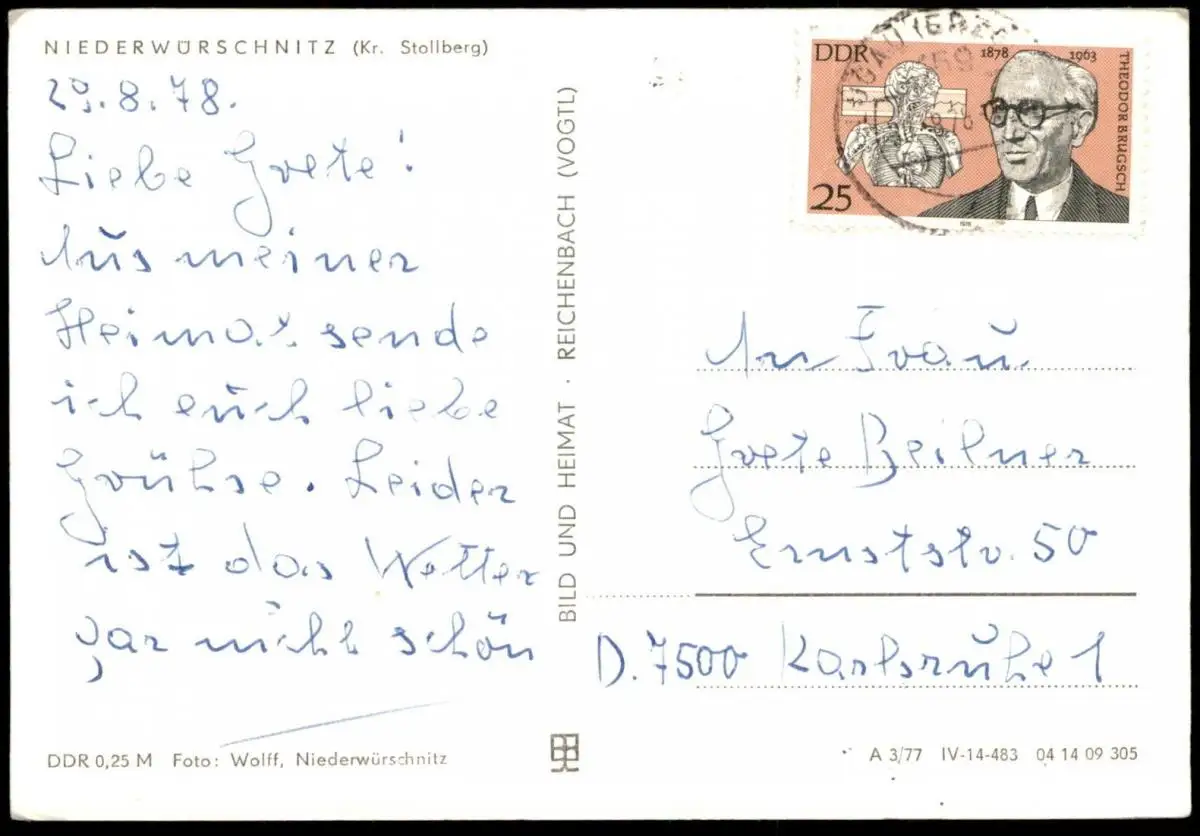 NIEDERWÜRSCHNITZ (Kr. Stollberg)
29.8.78.
Liebe Grete!
Aus meiner
Heimat sende
ich euch liebe
Grühse. Leider
ist das Wetter
gar nicht schön
DDR 0,25 M Foto: Wolff, Niederwürschnitz
BILD UND HEIMAT · REICHENBACH (VOGTL)
DDR 1878 1963
THEODOR BRUGSCH
25
An Frau
Grete Beilner
Ernststr. 50
D. 7500 Karlsruhe 1
A 3/77 IV-14-483 04 14 09 305